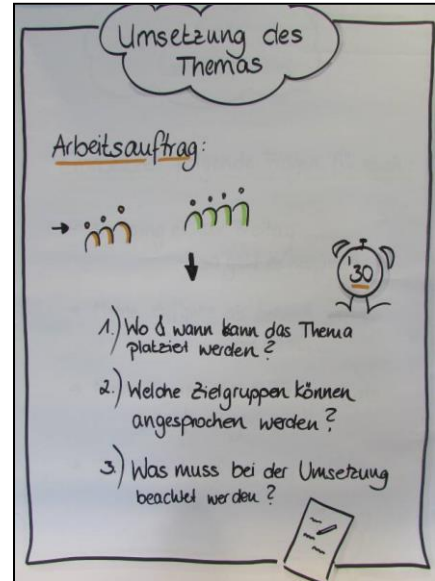 Umsetzung des
Themas
Arbeitsauftrag:
'30
1.) Wo & wann kann das Thema
platziet werden?
2.) Welche Zielgruppen können
angesprochen werden?
3.) Was muss bei der Umsetzung
beachtet werden?